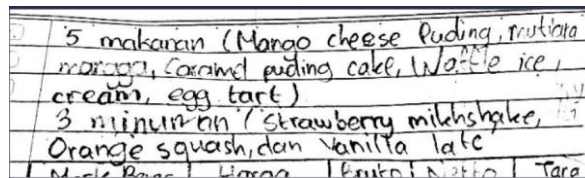 5 makanan (Mango cheese Puding, mutiara
mangga, Caramel puding cake, Waffle ice,
cream, egg tart)
3 minuman (Strawberry milkhshake,
Orange squash, dan Vanilla late
Harga | Bruto | Netto | Tara